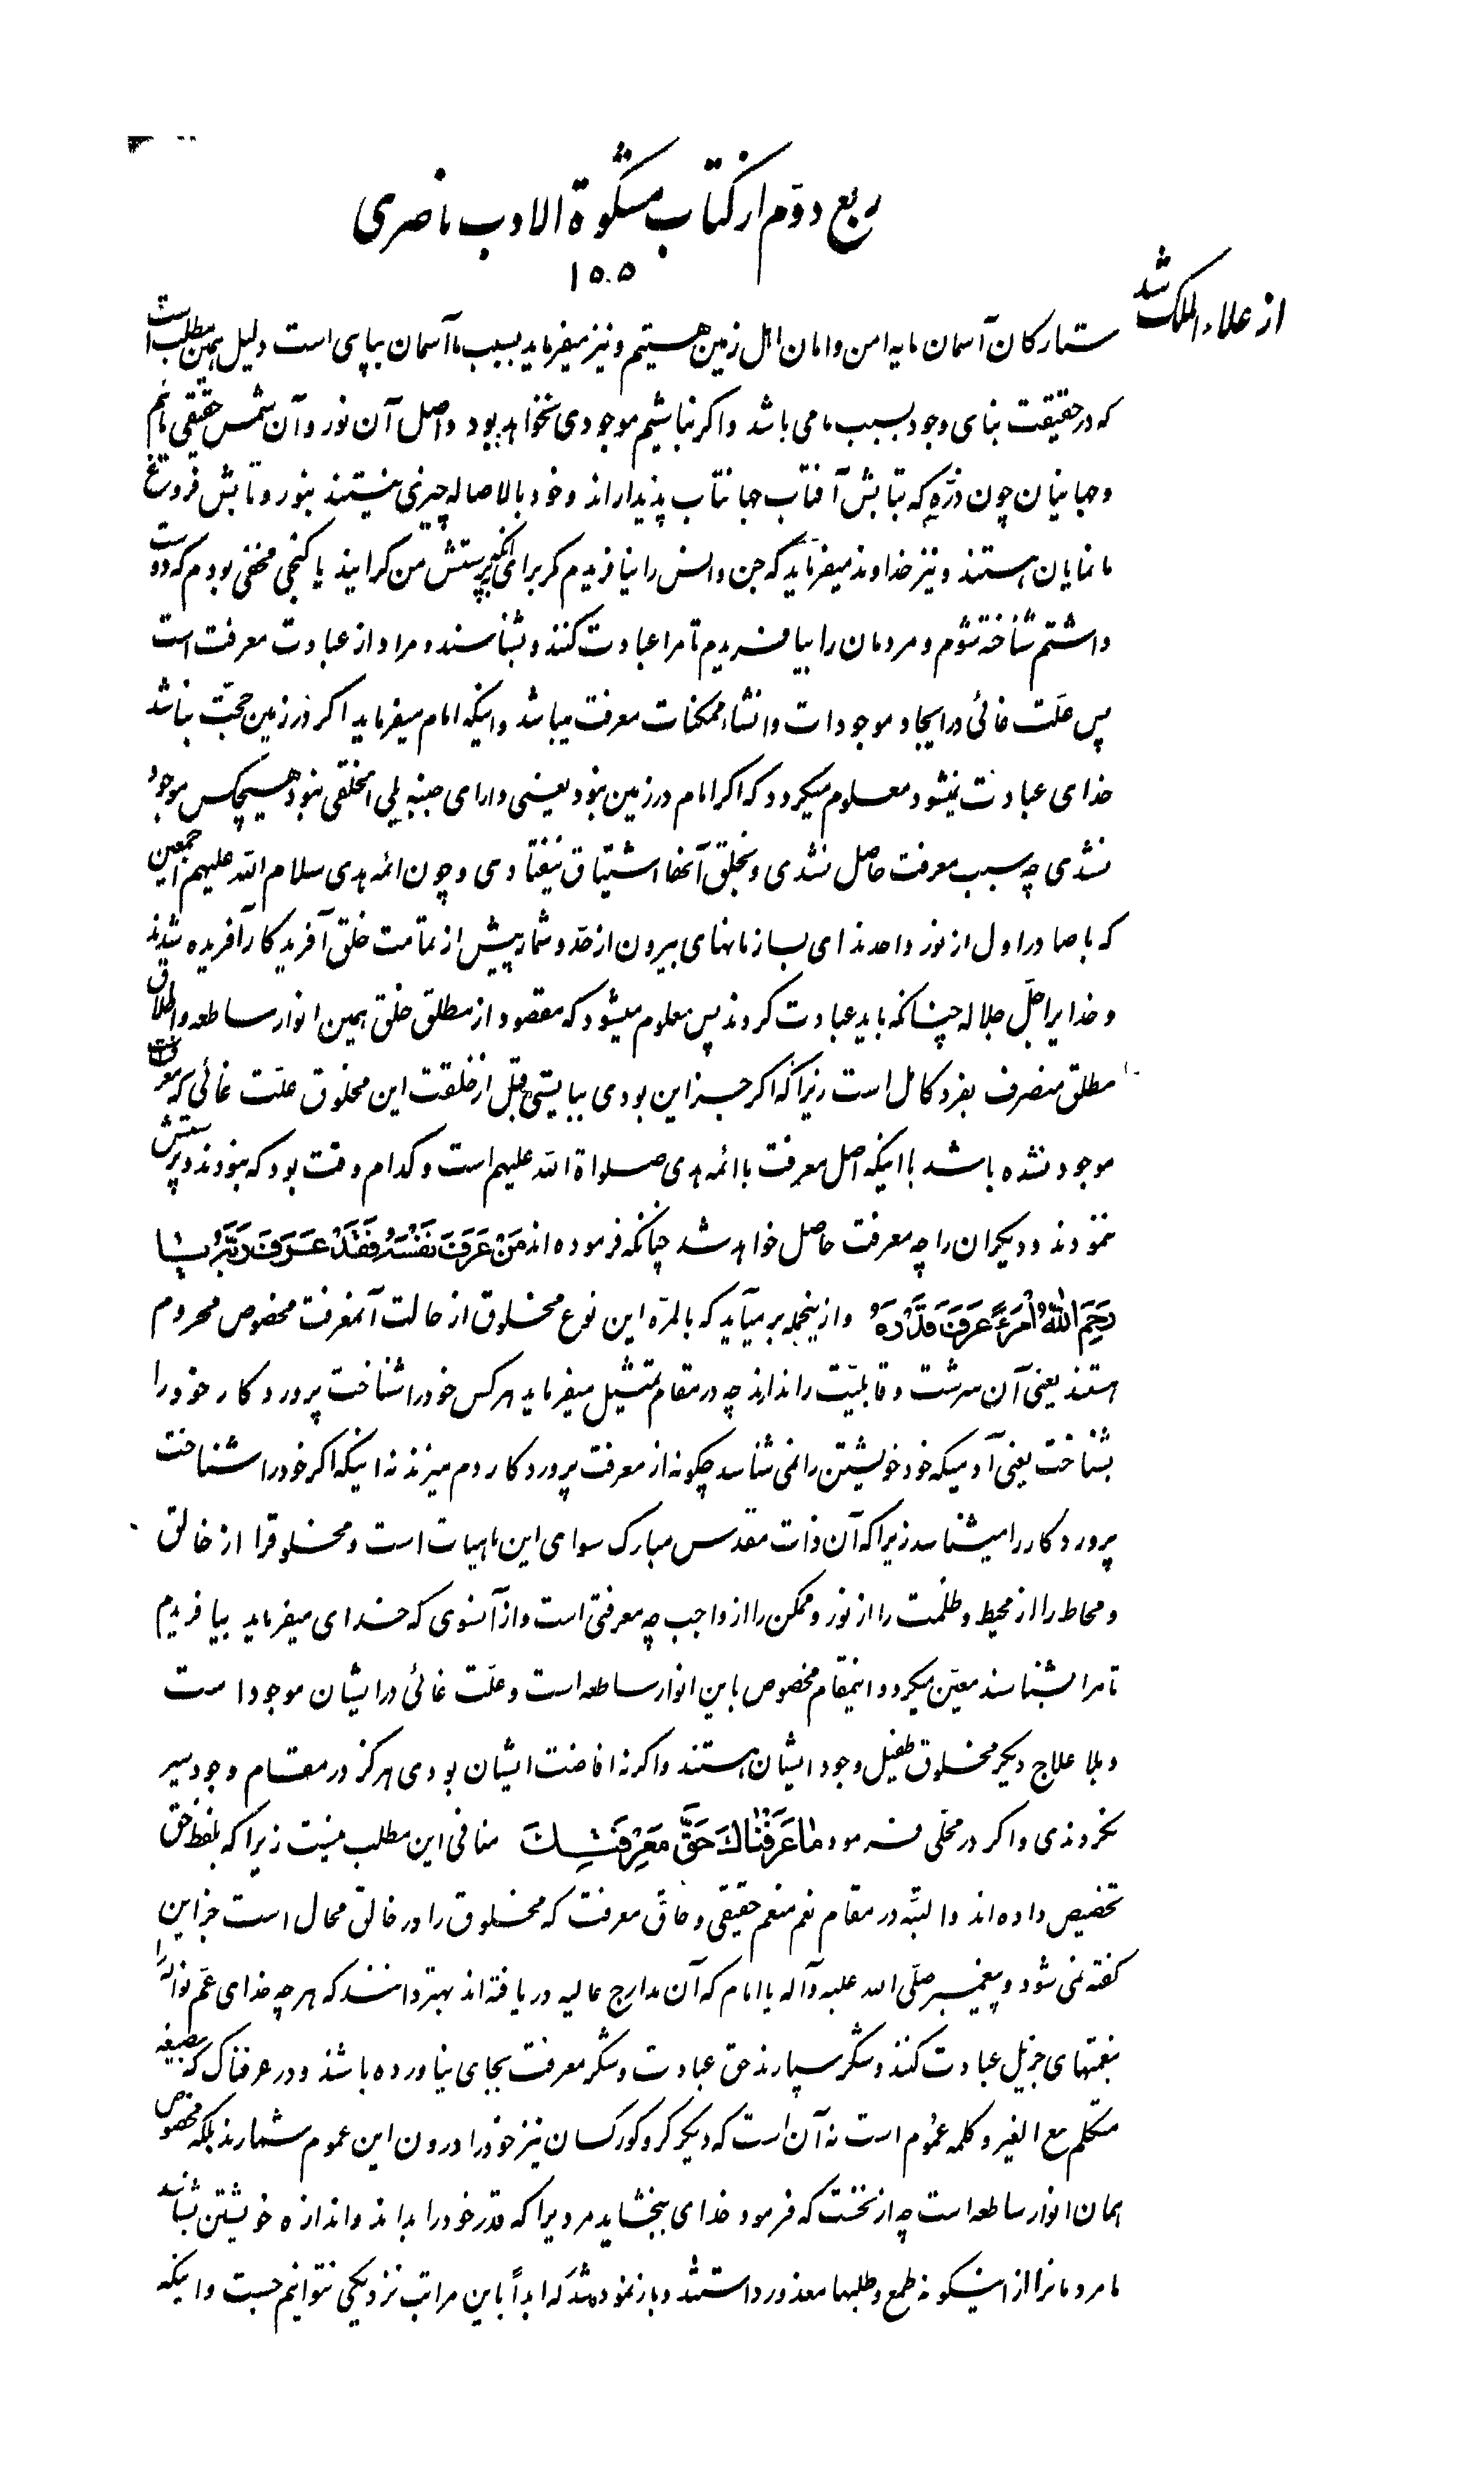 ربع دوّم از کتاب مشکوة الادب ناصری
۱۵۰۵
از علاء الملک شد
ستارکان آسمان مایه امن و امان اهل زمین هستیم و نیز میفرماید بسبب ما آسمان بپای است دلیل همین مطلب است
که در حقیقت بنای وجود بسبب ما می باشد و اکر نباشیم موجودی نخواهد بود و اصل آن نور و آن شمس حقیقی مائیم
و جهانیان چون ذرّه که بتابش آفتاب جهانتاب پدیدار اند و خود بالاصاله چیزی نیستند بنور و تابش فروغ
ما نمایان هستند و نیز خداوند میفرماید که جن و انس را نیافریدم مکر برای آنکه بپرستش من کرایند یا کنجی مخفی بودم که دوست
داشتم شناخته شوم و مردمان را بیافریدم تا مرا عبادت کنند و بشناسند و مراد از عبادت معرفت است
پس علّت غائی در ایجاد موجودات و انشاء ممکنات معرفت میباشد و اینکه امام میفرماید اکر در زمین حجّت نباشد
خدای عبادت نمیشود معلوم میکردد که اکر امام در زمین نبود یعنی دارای جنبه یلی الخلقی نبود هیچکس موجود
نشدی چه سبب معرفت حاصل نشدی و بخلق آنها اشتیاق نیفتادی و چون ائمه هدی سلام الله علیهم اجمعین
که با صادر اول از نور واحدند ای بسا زمانهای بیرون از حدّ و شمار پیش از تمامت خلق آفریدکار آفریده شدند
و خدایرا جلّ جلاله چنانکه باید عبادت کردند پس معلوم میشود که مقصود از مطلق خلق همین انوار ساطعه و اطلاق
مطلق منصرف بفرد کامل است زیرا که اکر جز این بودی ببایستی قبل از خلقت این مخلوق علّت غائی که معرفت
موجود نشده باشد با اینکه اصل معرفت با ائمه هدی صلواة الله علیهم است و کدام وقت بود که نبودند و پرستش
ننمودند و دیکران را چه معرفت حاصل خواهد شد چنانکه فرموده اند مَنْ عَرَفَ نَفْسَهُ فَقَدْ عَرَفَ رَبَّهُ یا
رَحِمَ اللّهُ امْرَءً عَرَفَ قَدْرَهُ و از ینجمله بر میآید که بالمرّه این نوع مخلوق از حالت آنمعرفت مخصوص محروم
هستند یعنی آن سرشت و قابلیّت را ندارند چه در مقام تمثیل میفرماید هرکس خود را شناخت پروردکار خود را
بشناخت یعنی آدمیکه خود خویشتن را نمی شناسد چکونه از معرفت پروردکار دم میزند نه اینکه اکر خود را شناخت
پروردکار را میشناسد زیرا که آن ذات مقدس مبارک سوای این ماهیات است و مخلوقرا از خالق
و محاط را از محیط و ظلمت را از نور و ممکن را از واجب چه معرفتی است و از آنسوی که خدای میفرماید بیافریدم
تا مرا بشناسند معیّن میکردد اینمقام مخصوص باین انوار ساطعه است و علّت غائی در ایشان موجود است
و بلا علاج دیکر مخلوق طفیل وجود ایشان هستند و اکر نه افاضت ایشان بودی هرکز در مقام وجود سیر
نکردندی و اکر در محلّی فرمود ما عَرَفْناکَ حَقَّ مَعْرِفَتِکَ منافی این مطلب نیست زیرا که بلفظ حق
تخصیص داده اند و البتّه در مقام نعم منعم حقیقی و حاقّ معرفت که مخلوق را در خالق محال است جز این
کفته نمی شود و پیغمبر صلّی الله علیه و آله یا امام که آن مدارج عالیه دریافته اند بهتر دانند که هر چه خدای عمّ نواله را
بنعمتهای جزیل عبادت کنند و شکر سپارند حق عبادت و شکر معرفت بجای نیاورده باشند و در عرفناک که بصیغه
متکلم مع الغیر و کلمه عموم است نه آن است که دیکر کر و کور کسان نیز خود را درون این عموم شمارند بلکه مخصوص
همان انوار ساطعه است چه از نخست که فرمود خدای ببخشاید مردیرا که قدر خود را بداند و اندازه خویشتن بشناسد
ما مردمانرا از اینکونه طمع و طلبها معذور داشتند و باز نموده شد که ابداً باین مراتب نزدیکی نتوانیم جست و اینکه